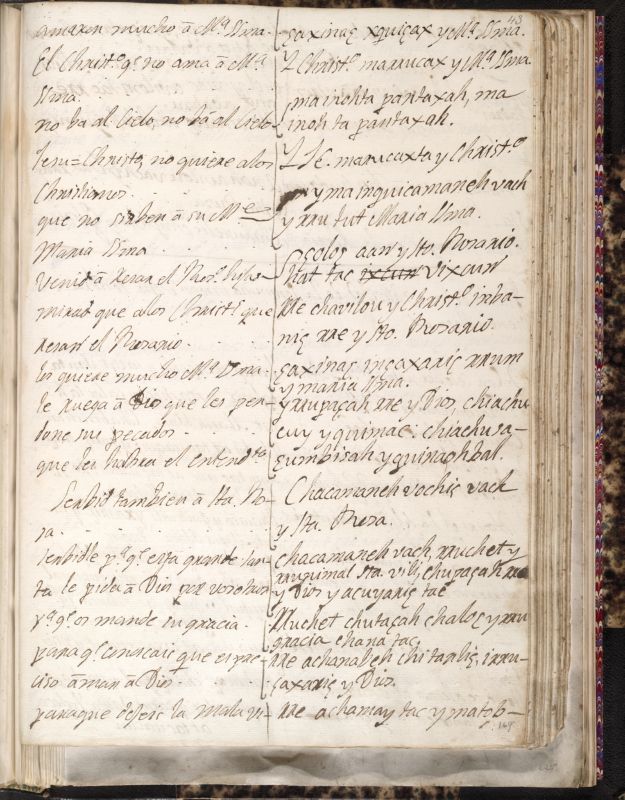 43
amaren mucho â Mª Vma.
El Christº qº no ama â Mª
Vma.
no ba al Cielo, no ba al cielo
Jesu=Christo, no quiere a los
Christianos.
que no sirben â su Mº
Maria Vma
Venid â resar el Rosº
mirad que a los Christ que
resan el Rosario.
los quiere mucho Mª Vma.
le ruega â Dios que les per-
done sus pecados.
que les habra el entendtº
Serbid tambien â Sta. Ro-
sa.
Serbidle pª qº esta grande san-
ta le pida â Dios por vosotros
pª qº os mande su gracia.
para qº conoscais que es pre-
ciso amar â Dios
paraque dejeis la mala vi-
çaxinaç xquiçax y Mª Vma.
Y Christº marrucax y Mª Vma
ma inohta pantaxah, ma
inoh ta pantaxah.
Y Je. marucaxta y Christº
y ma inquicamaneh vach
y rru tut Maria Vma.
çoloç aan y Sto. Rosario.
hat tac vixcun
Re chavilou y Christº inba-
niç rre y Sto. Rosario.
çaxinaç inçaxariç rrum
y maria Vma.
rrupaçah rre y Dios, chiachu
cuy y quimac. chiachusa-
çumbisah y quinaohbal.
Chacamaneh vochiç vach
y Sta. Rosa.
chacamaneh vach, rruchet y
rrunimal Sta. vili, chupaçah rre
y Dios y acuyariç tac
Ruchet chutaçah chaloç y rru
gracia chana tac.
Re achanabeh chi tanliç, irru-
çaxariç y Dios.
Re achamay tac y matob-
149